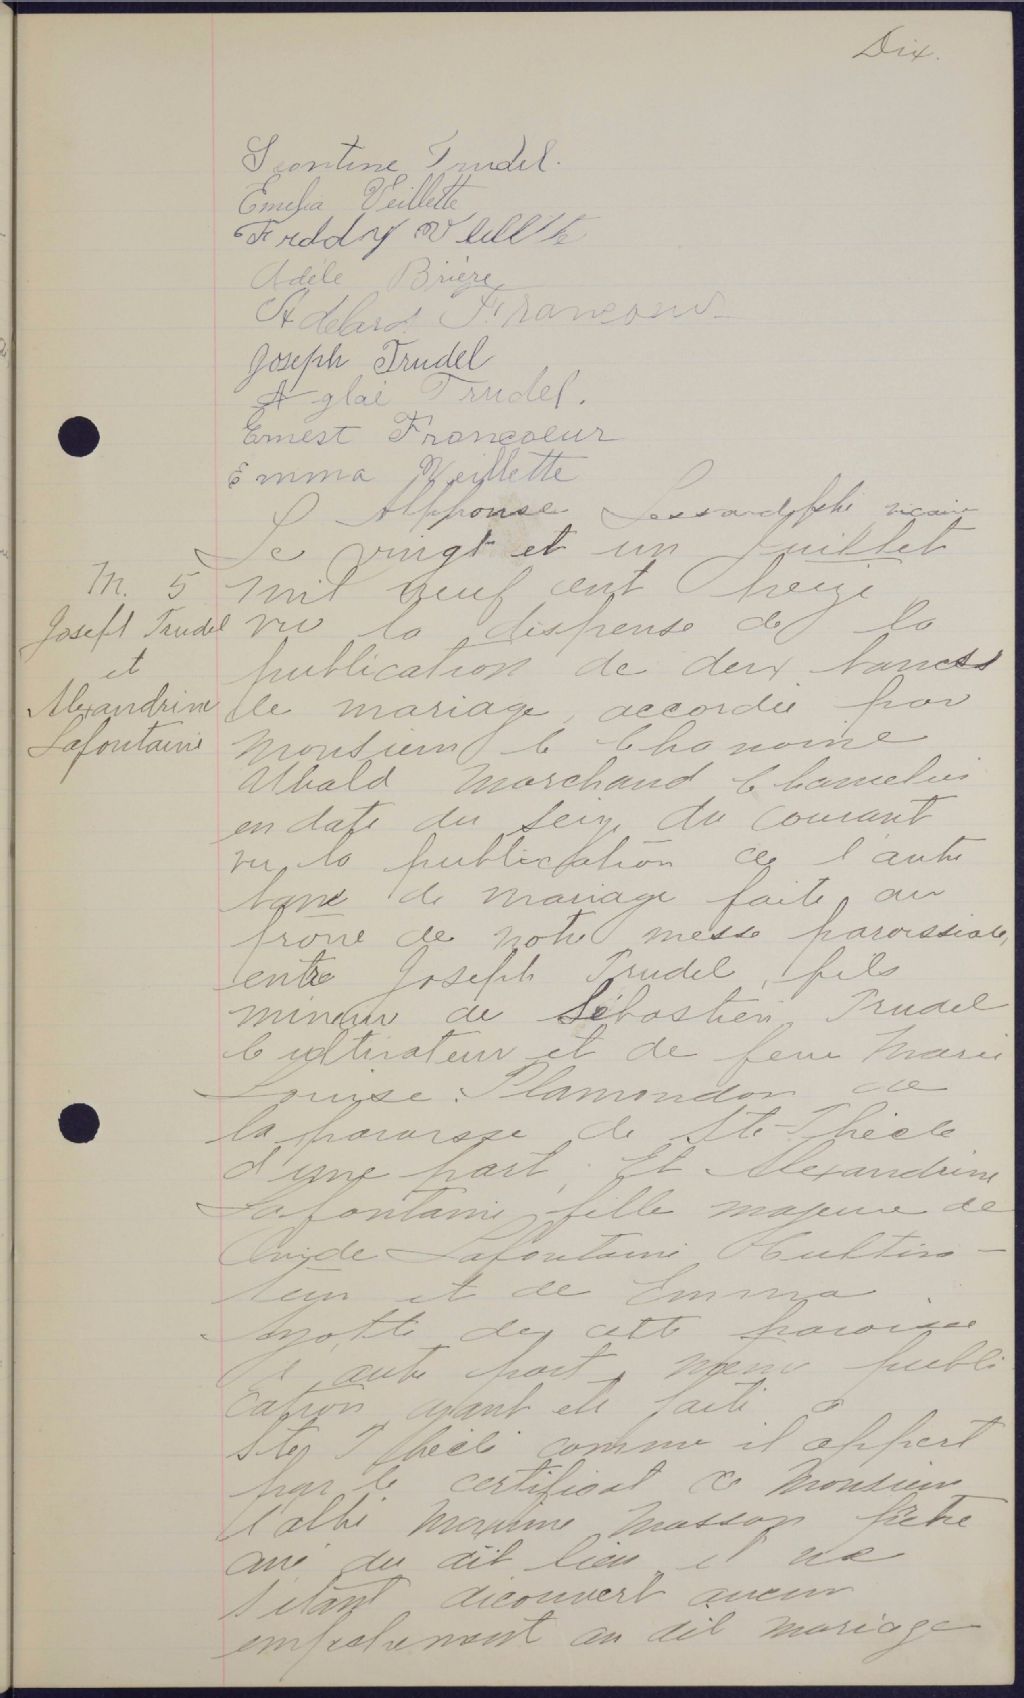 Dix.
Léontine Trudel.
Emelia Veillette
Freddy Veillette
Adèle Brière
Adelard Francoeur
Joseph Trudel
Aglaé Trudel.
Ernest Francoeur
Emma Veillette
Alphonse Lessard, ptre vicaire
M. 5
Joseph Trudel
et
Alexandrine
Lafontaine
Le vingt et un Juillet
mil neuf cent treize
vu la dispense de la
publication de deux bancs
de mariage, accordée par
Monsieur le Chanoine
Ubald Marchand Chancelier
en date du seize du courant
vu la publication de l'autre
banc de mariage faite au
prône de notre messe paroissiale,
entre Joseph Trudel, fils
mineur de Sébastien Trudel
Cultivateur et de feue Marie
Louise Plamondon de
la paroisse de Ste-Thècle
d'une part, Et Alexandrine
Lafontaine fille majeure de
Ovide Lafontaine Cultiva-
teur et de Emma
Ayotte de cette paroisse
d'autre part, même publi
cation ayant été faite à
Ste Thècle comme il appert
par le certificat de Monsieur
l'abbé Maxime Masson prêtre
curé du dit lieu, et ne
s'étant découvert aucun
empêchement au dit mariage